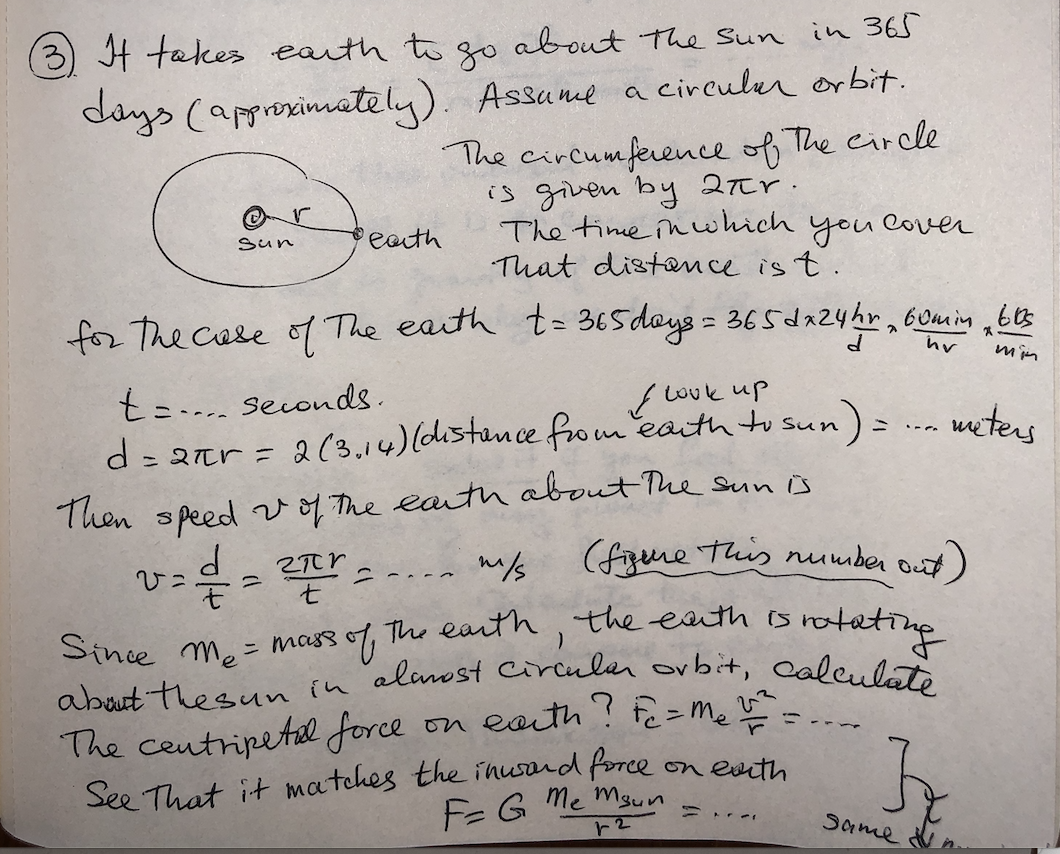 ③ It takes earth to go about the sun in 365
days (approximately). Assume a circular orbit.
The circumference of the circle
is given by 2πr.
r
sun
earth
The time in which you cover
that distance is t.
for the case of the earth t = 365 days = 365 d x 24 hr/d x 60 min/hr x 60s/min
t = .... seconds.
look up
d = 2πr = 2(3.14)(distance from earth to sun) = .... meters
Then speed v of the earth about the sun is
v = d/t = 2πr/t = ..... m/s (figure this number out)
Since me = mass of the earth, the earth is rotating
about the sun in almost circular orbit, calculate
The centripetal force on earth? Fc = me v²/r = .....
See that it matches the inward force on earth
F = G me msun / r² = ....
same